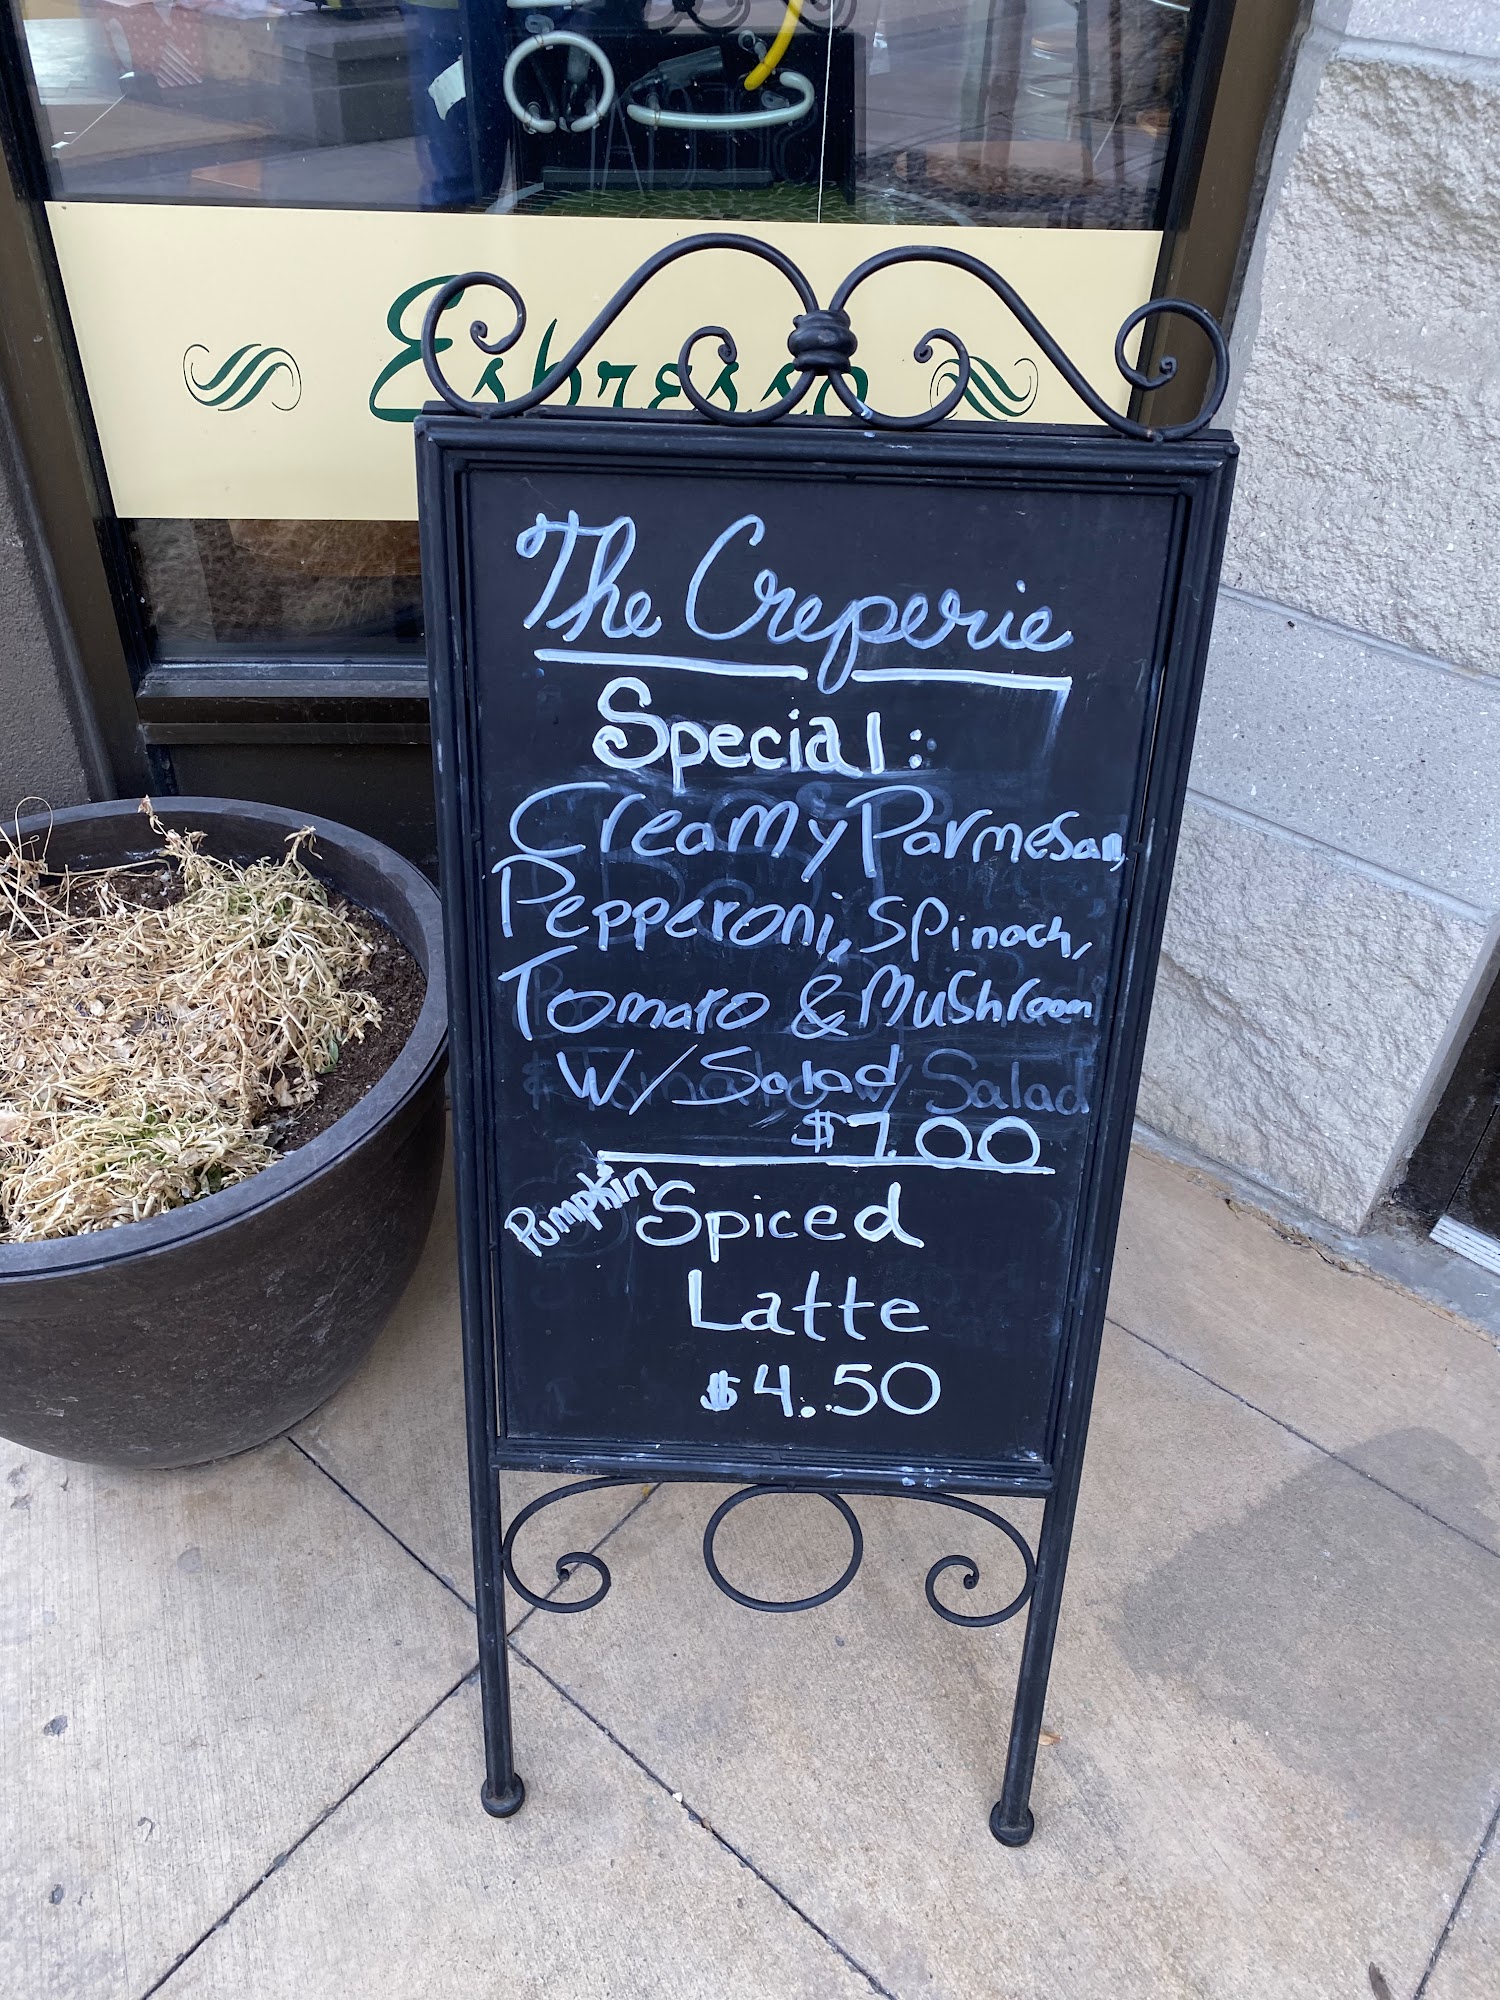 Espresso
The Creperie
Special:
Creamy Parmesan,
Pepperoni, Spinach,
Tomato & Mushroom
W/ Salad
$7.00
Pumpkin Spiced
Latte
$4.50